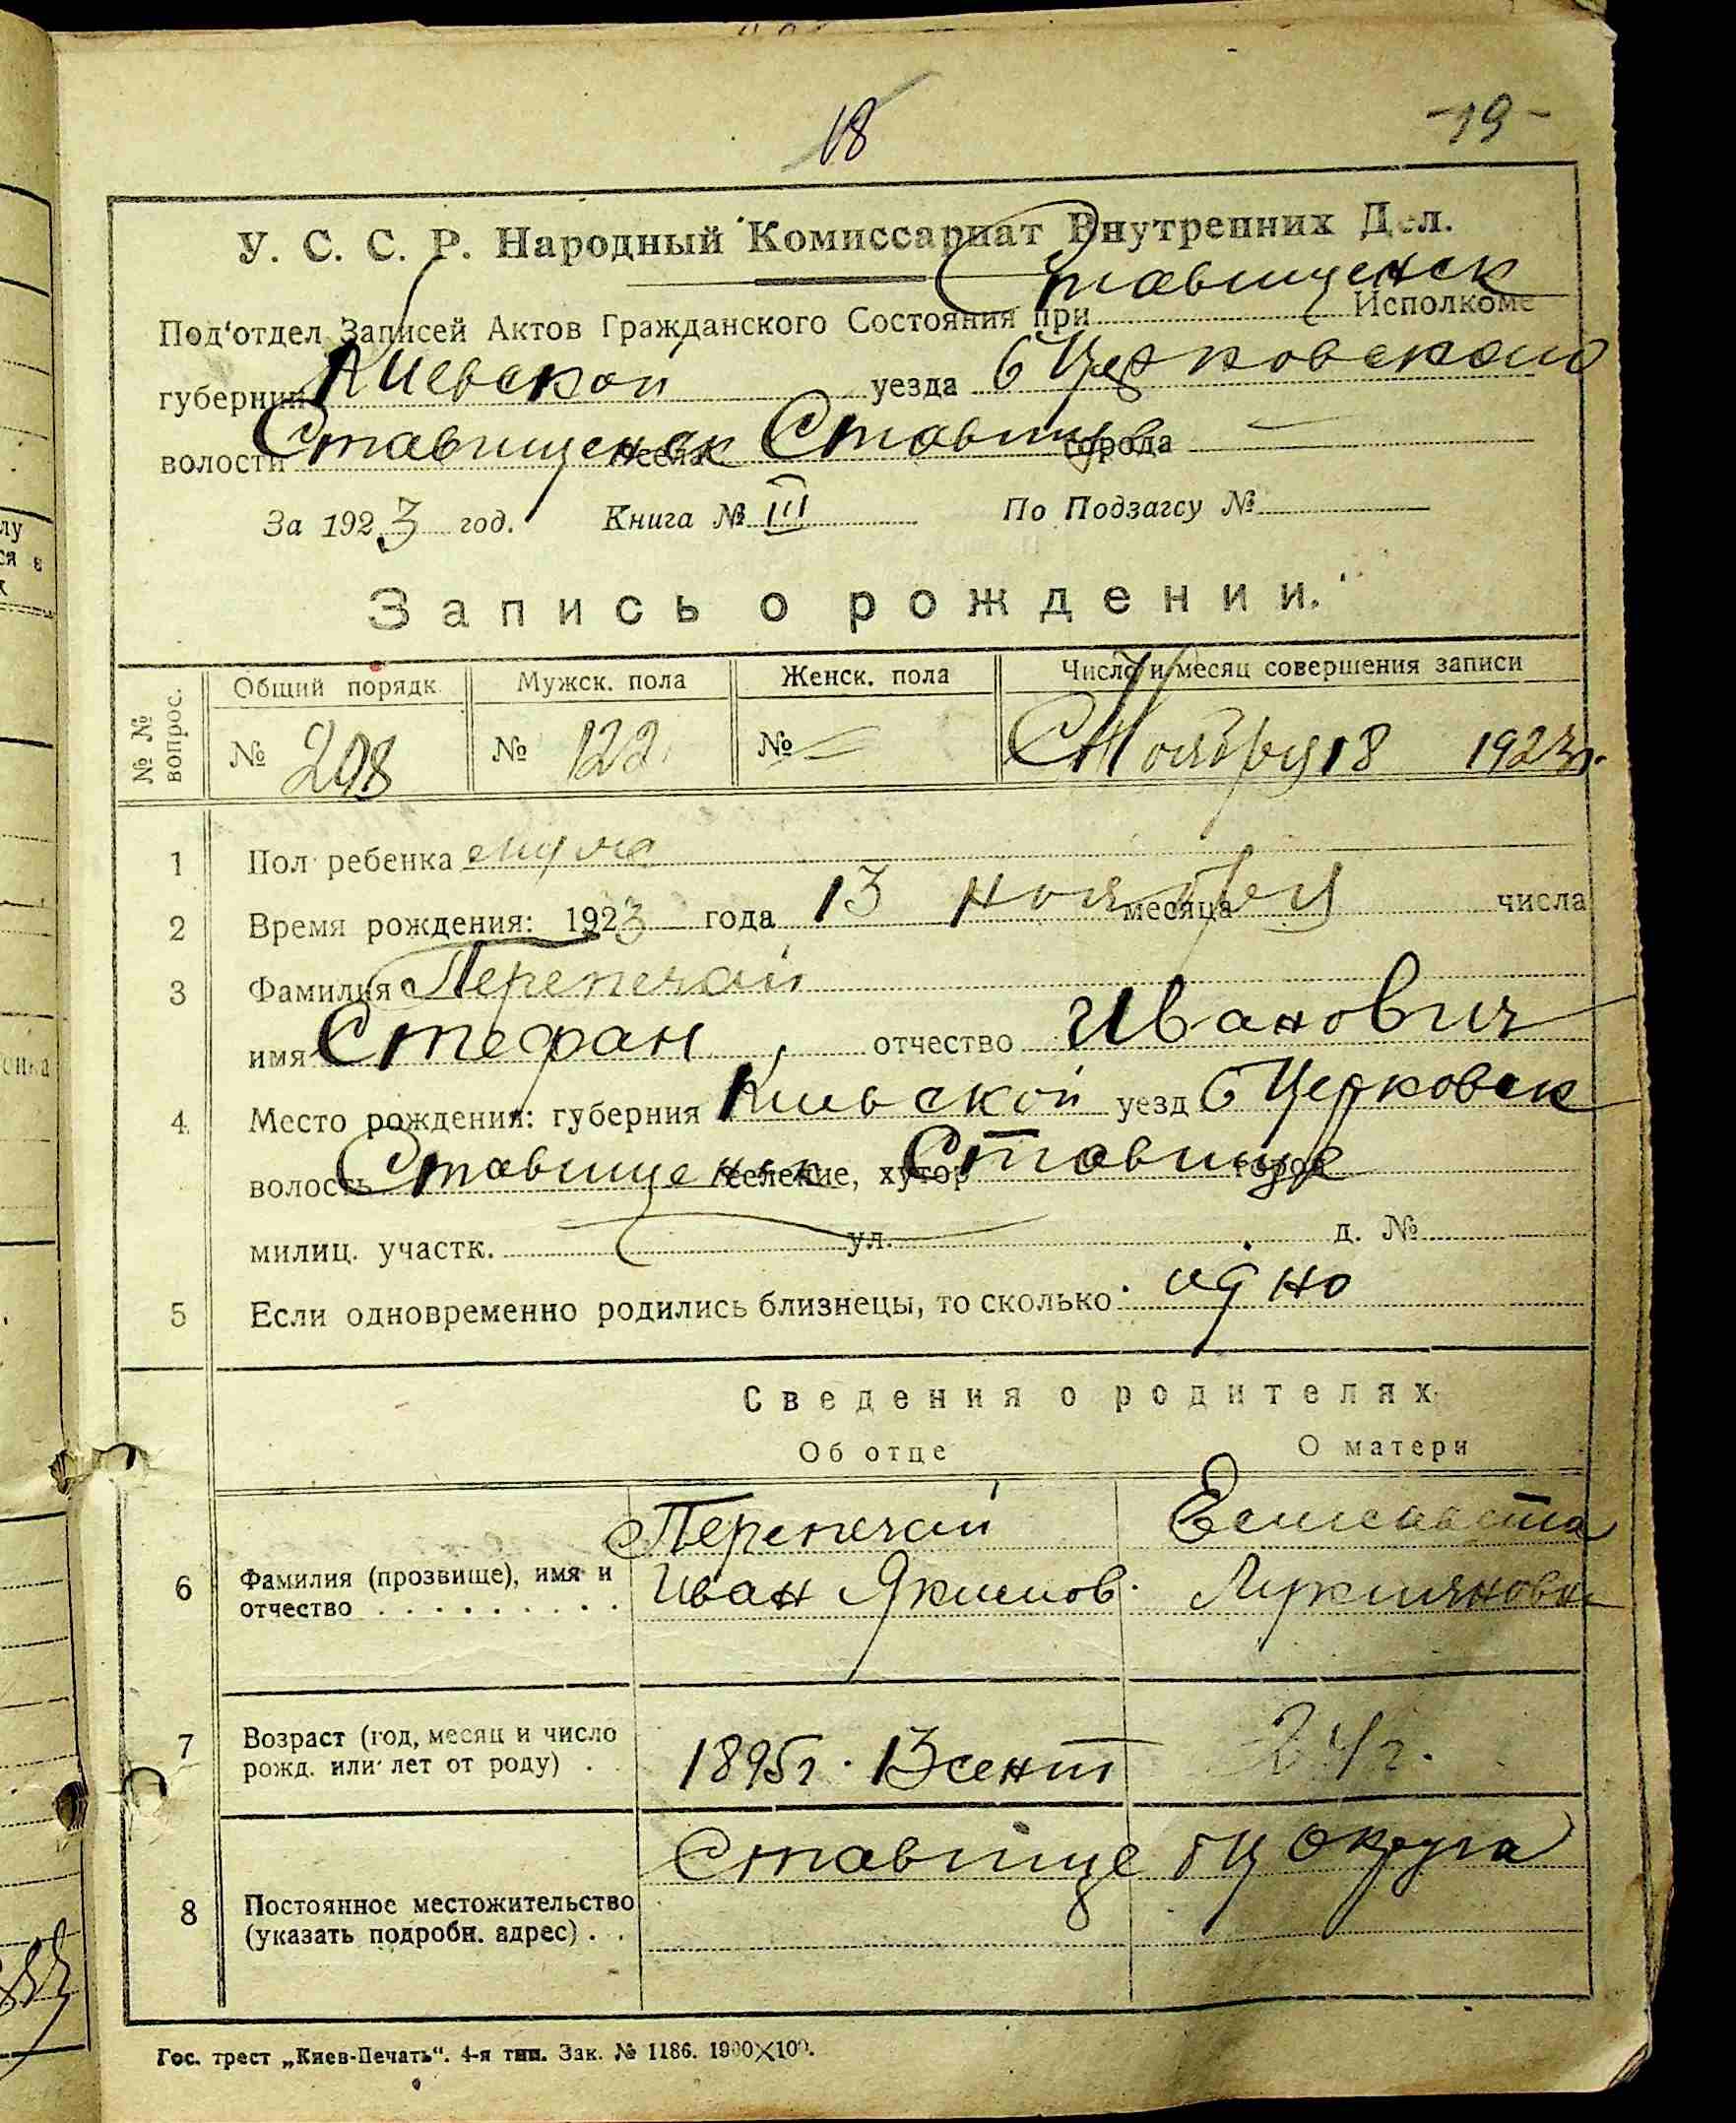 18
-19-
У. С. С. Р. Народный Комиссариат Внутренних Дел.
Под‘отдел Записей Актов Гражданского Состояния при Ставищенск Исполкоме
губернии Киевской уезда б Церковского
волости Ставищенск села Ставище города —
За 1923 год. Книга № III По Подзагсу №
Запись о рождении.
№ № вопрос. Общий порядк. Мужск. пола Женск. пола Число и месяц совершения записи
№ 208 № 122 № — Ноября 18 1923г.
1 Пол ребенка муж
2 Время рождения: 1923 года 13 ноября месяца числа
3 Фамилия Перепечай
имя Стефан отчество Иванович
4 Место рождения: губерния Киевской уезд б Церковск
волость Ставищенск селение, хутор Ставище город
милиц. участк. ул. д. №
5 Если одновременно родились близнецы, то сколько одно
Сведения о родителях
Об отце О матери
Перепечай Елисавета
6 Фамилия (прозвище), имя и отчество . . . . . . . . . Иван Якимов. Лукияновна
7 Возраст (год, месяц и число рожд. или лет от роду) . . 1895г. 13 сент 24 г.
Ставище б ц округа
8 Постоянное местожительство
(указать подробн. адрес) . .
Гос. трест „Киев-Печать“. 4-я тип. Зак. № 1186. 1900×100.